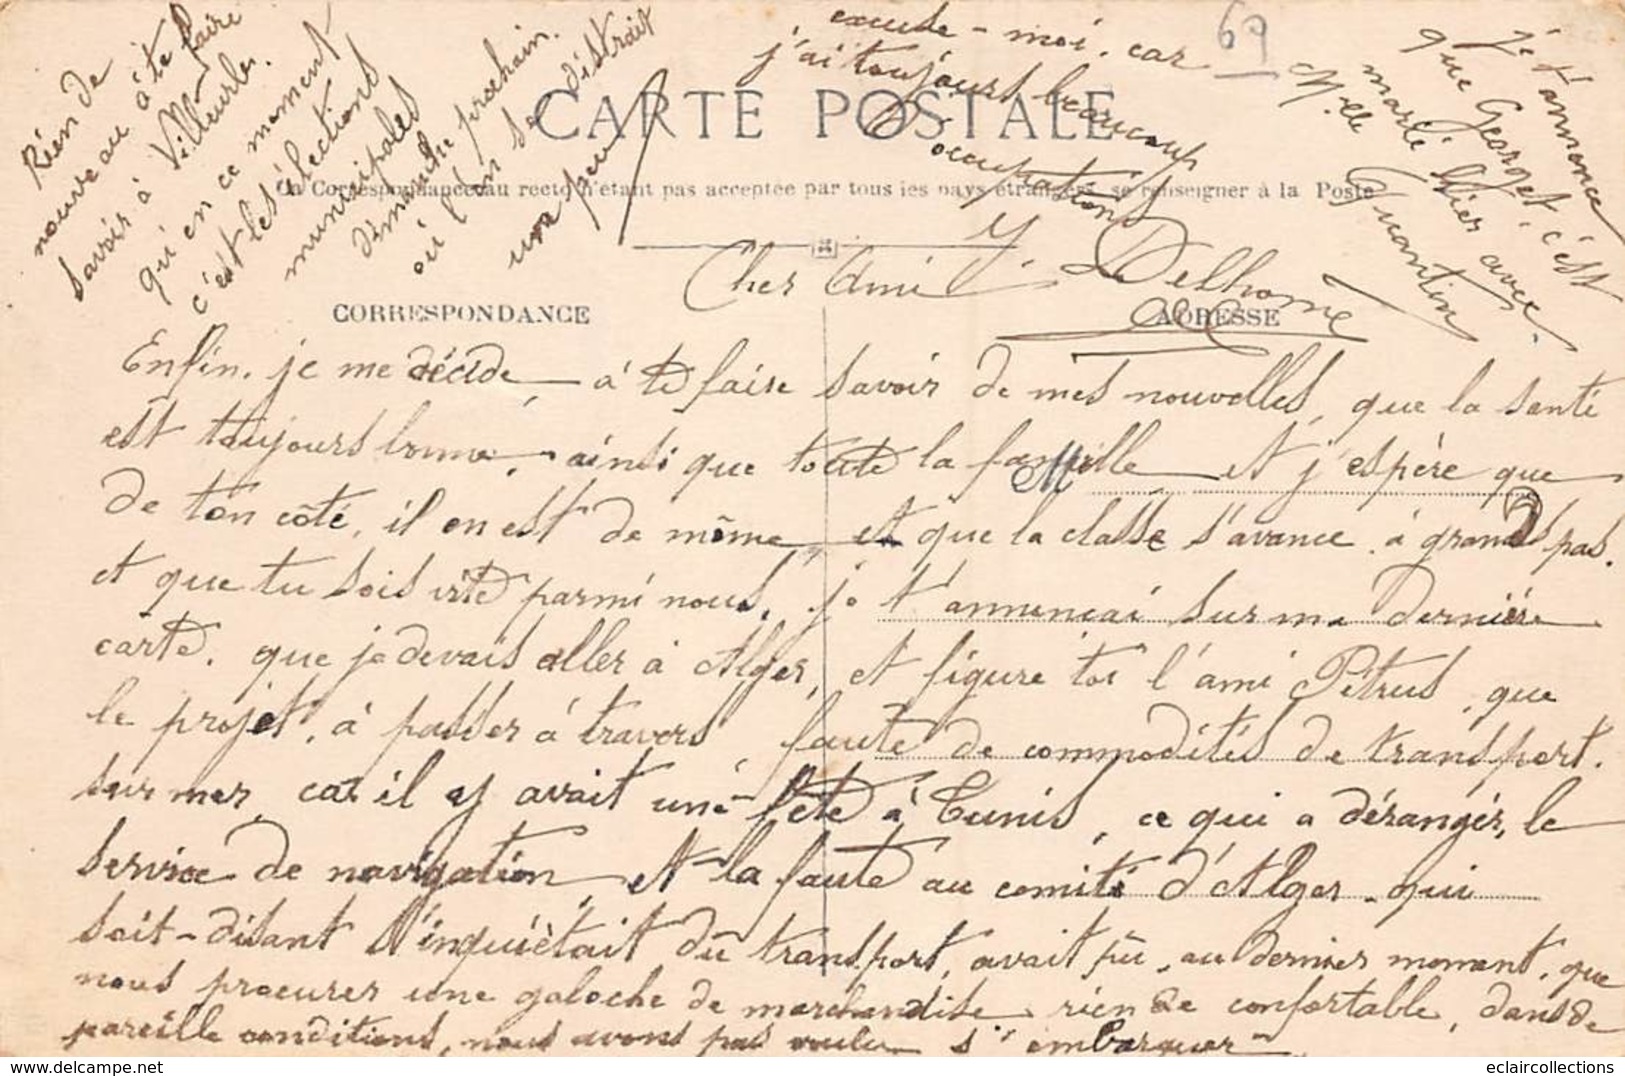 Rien de
nouveau à te faire
savoir à Villeurb.
qu'en ce moment
c'est les élections
municipales
dimanche prochain.
où l'on se distrait
un peu
excuse-moi. car
j'ai toujours beaucoup
d'occupations
69
je t'annonce
que Georget, c'est
marié hier avec.
Melle Quantin
CARTE POSTALE
La Correspondance au recto n'étant pas acceptée par tous les pays étrangers, se renseigner à la Poste
Cher Ami
Delhome
CORRESPONDANCE
ADRESSE
Enfin. je me décide à te faire savoir de mes nouvelles, que la santé
est toujours bonne, ainsi que toute la famille et j'espère que
de ton côté, il en est de même, et que la classe s'avance à grand pas.
et que tu sois vite parmi nous, je t'annonçai sur ma dernière
carte. que je devais aller à Alger, et figure toi l'ami Pétrus, que
le projet, à passer à travers faute de commodités de transport.
sur mer, car il y avait une fête à Tunis, ce qui a dérangér, le
service de navigation, et la faute au comité d'Alger. qui
soit-disant s'inquiètait du transport, avait pu, au dernier moment. que
nous procurer une galoche de marchandise rien de confortable, dans de
pareille conditions, nous avons pas voulu s'embarquer
eclaircollections